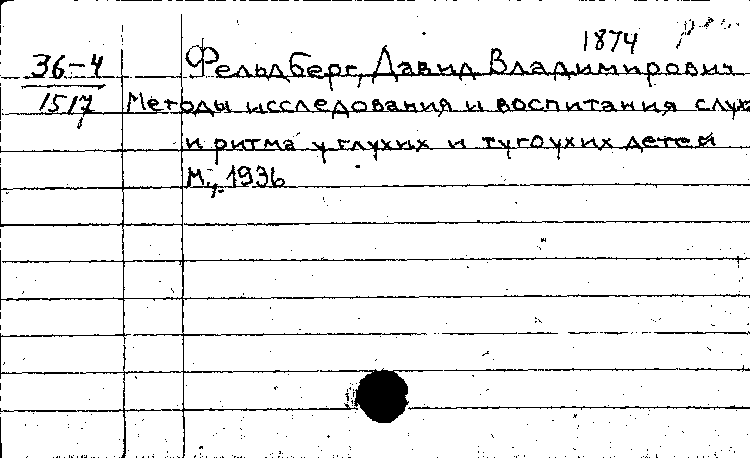 1874
36-4 Фельдберг, Давид Владимирович
1517 Методы исследования и воспитания слух
и ритма у глухих и тугоухих детей
М., 1936